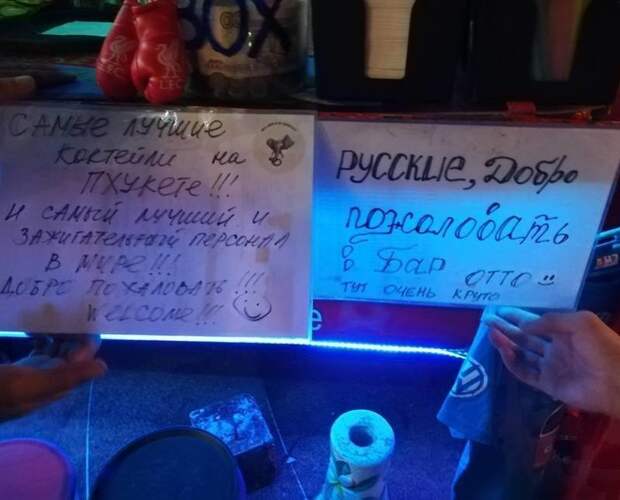 BOX
LFC
LFC
САМЫЕ ЛУЧШИЕ
КОКТЕЙЛИ НА
ПХУКЕТЕ!!!
И САМЫЙ ЛУЧШИЙ И
ЗАЖИГАТЕЛЬНЫЙ ПЕРСОНАЛ
В МИРЕ!!!
ДОБРО ПОЖАЛОВАТЬ!!!
WELCOME!!!
РУССКИЕ, Добро
пожаловать
в Бар ОТТО
ТУТ ОЧЕНЬ КРУТО